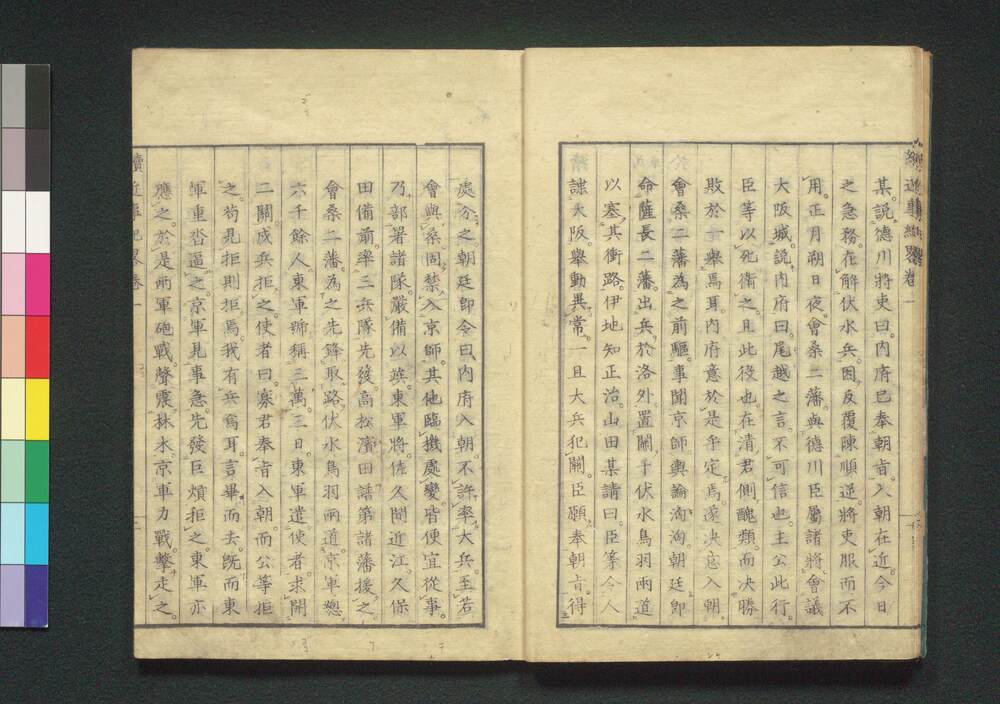 續近事紀畧卷一
某説德川將吏曰内府已奉朝旨入朝在近今日
之急務在解伏水兵困反覆陳順逆將吏服而不
用正月朔日夜會桑二藩與德川臣屬諸將會議
大阪城説内府曰尾越之言不可信也主公此行
臣等以死衛之且此役也在清君側醜類而決勝
敗於一舉焉耳内府意於是乎定焉遂決志入朝
會桑二藩為之前驅事聞京師輿論洶洶朝廷即
命薩長二藩出兵於洛外置關于伏水鳥羽兩道
以塞其衝路伊地知正治山田某請曰臣等今人
諜大阪舉動異常一且大兵犯關臣願奉朝旨得
處分之朝廷即令曰内府入朝不許率大兵至若
會與桑固禁入京師其他臨機處變皆便宜從事
乃部署諸隊嚴備以竢東軍將佐久間近江久保
田備前率三兵隊先發高松濱田譜第諸藩援之
會桑二藩為之先鋒取路伏水鳥羽兩道京軍總
六千餘人東軍號稱三萬三日東軍遣使者求開
二關戍兵拒之使者曰寡君奉旨入朝而公等拒
之苟見拒則拒焉我有兵焉耳言畢而去既而東
軍重沓逼之京軍見事急先發巨熕拒之東軍亦
應之於是兩軍砲戰聲震林木京軍力戰擊走之
續近事紀畧卷一